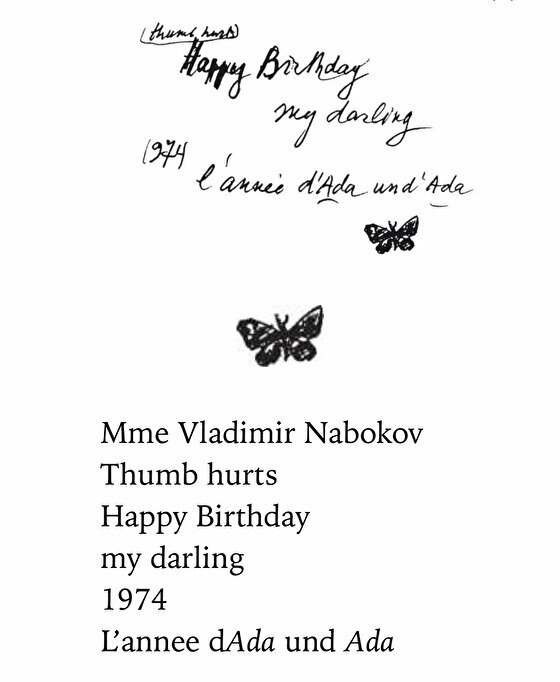 (thumb hurts)
Happy Birthday
my darling
1974
l'année d'Ada und'Ada
Mme Vladimir Nabokov
Thumb hurts
Happy Birthday
my darling
1974
L’annee dAda und Ada